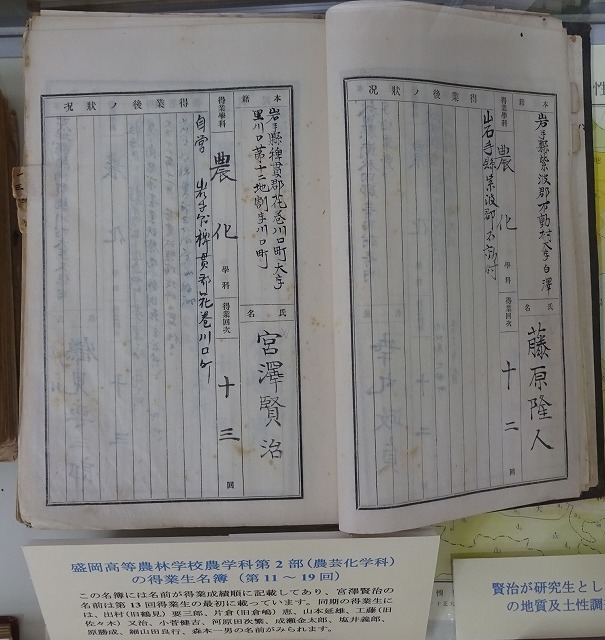 本籍
岩手縣紫波郡不動村大字白澤
氏名
藤原隆人
得業學科
農化
學科
得業回次
十二
回
得業後ノ狀況
岩手縣紫波郡不動村
本籍
岩手縣稗貫郡花巻川口町大字
里川口第十二地割字川口町
氏名
宮澤賢治
得業學科
農化
學科
得業回次
十三
回
得業後ノ狀況
自営
岩手縣稗貫郡花巻川口町
盛岡高等農林学校農学科第2部(農芸化学科)
の得業生名簿(第11~19回)
この名簿には名前が得業成績順に記載してあり、宮澤賢治の
名前は第13回得業生の最初に載っています。同期の得業生に
は、出村(旧鶴見)要三郎、片倉(旧倉嶋)恵、山本延雄、工藤(旧
佐々木)又治、小菅健吉、河原田次繁、成瀬金太郎、塩井義郎、
原勝成、細山田良行、森本一男の名前がみられます。
賢治が研究生とし
の地質及土性調
性